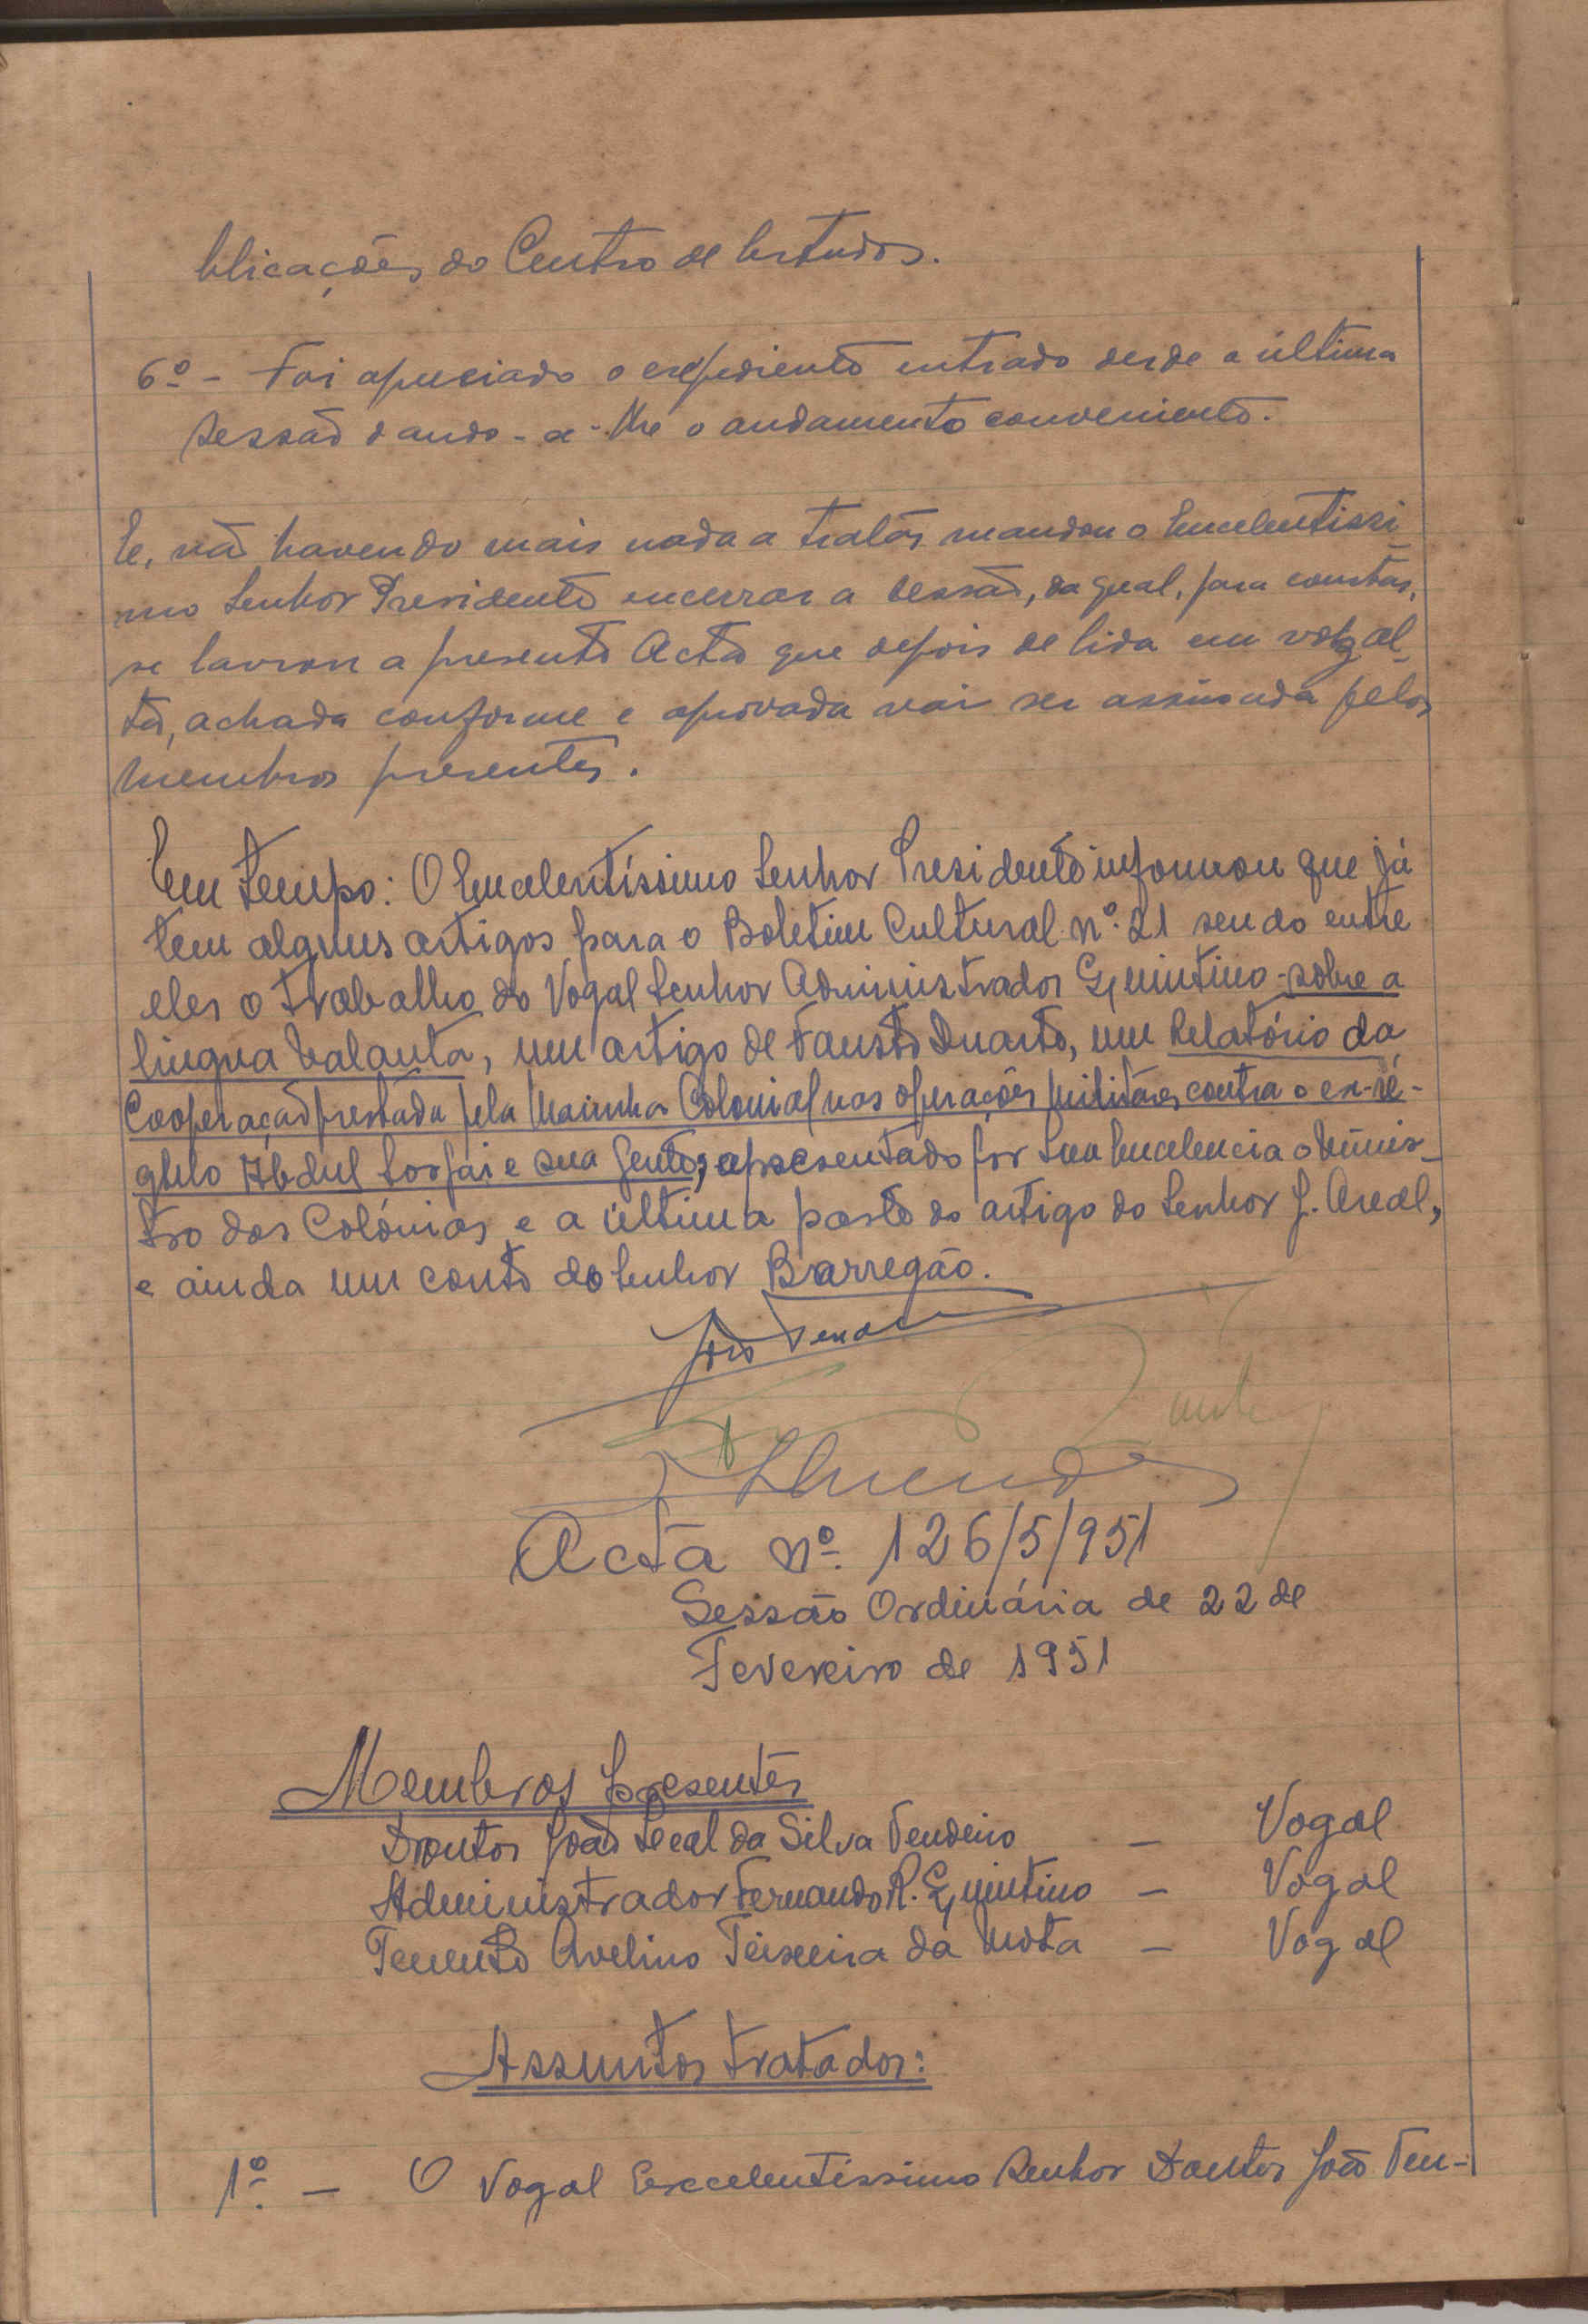 blicações do Centro de Estudos.
6º - Foi apreciado o expediente entrado desde a última
sessão dando-se-lhe o andamento conveniente.
E, não havendo mais nada a tratar mandou o Excelentíssi-
mo Senhor Presidente encerrar a sessão, da qual, para constar,
se lavrou a presente Acta que depois de lida em voz al-
ta, achada conforme e aprovada vai ser assinada pelos
membros presentes.
Em tempo: O Excelentíssimo Senhor Presidente informou que já
tem alguns artigos para o Boletim Cultural nº 21 sendo entre
eles o trabalho do Vogal Senhor Administrador Quintino - sobre a
lingua balanta, um artigo de Fausto Duarte, um Relatório da
Cooperação prestada pela Marinha Colonial nas operações militares contra o ex-ré-
gulo Abdul Sonfai e sua gente, apresentado por Sua Excelencia o Minis-
tro das Colónias, e a última parte do artigo do Senhor J. Areal,
e ainda um conto do Senhor Barregão.
João Tendeiro
Acta nº 126/5/951
Sessão Ordinária de 22 de
Fevereiro de 1951
Membros presentes
Doutor João Lecal da Silva Tendeiro - Vogal
Administrador Fernando R. Quintino - Vogal
Tenente Avelino Teixeira da Mota - Vogal
Assuntos tratados:
1º. - O Vogal Excelentissimo Senhor Doutor João Ten-